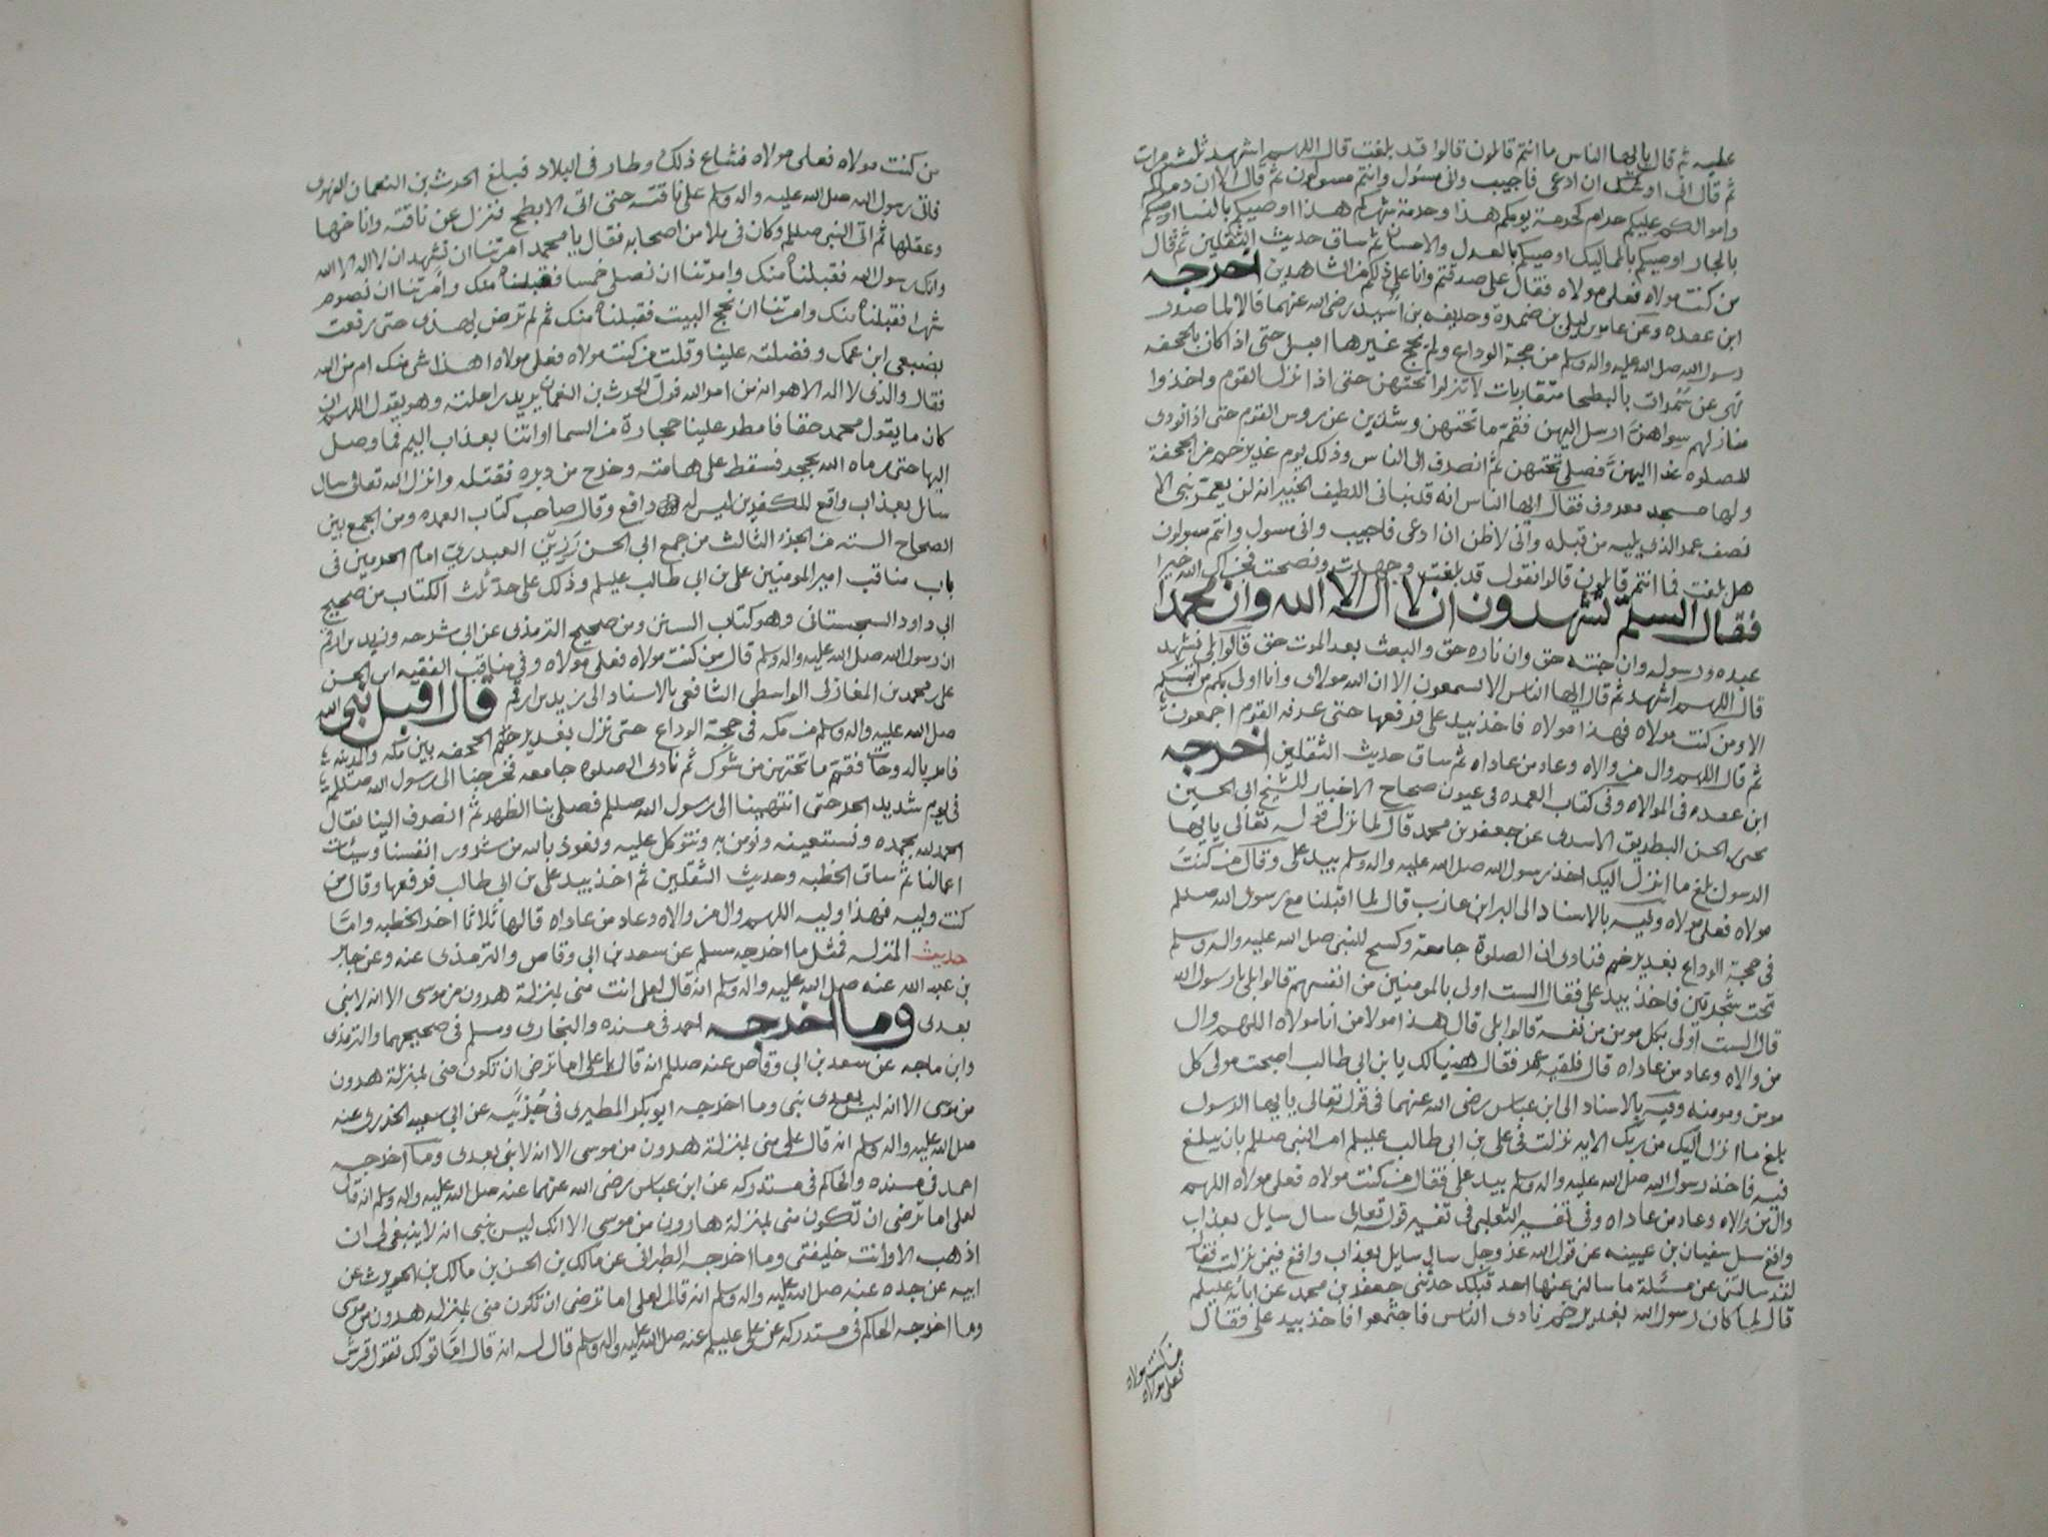 عليه ثم قال يا ايها الناس ما انتم قائلون قالوا قد بلغت قال اللهم اشهد ثلث مرات
ثم قال انى اوشك ان ادعى فاجيب وانى مسئول وانتم مسولون ثم قال الا ان دماكم
واموالكم عليكم حرام كحرمة يومكم هذا وحرمة شهركم هذا اوصيكم بالنسا اوصيكم
بالجار اوصيكم بالمماليك اوصيكم بالعدل والاحسان ثم ساق حديث الثقلين ثم قال
من كنت مولاه فعلى مولاه فقال على صدقتم وانا على ذلكم من الشاهدين اخرجه
ابن عقده وعن عامر بن ليلى بن ضمرة وحذيفه بن اسيد رضى الله عنهما قالا لما صدر
رسول الله صلى الله عليه واله وسلم من حجة الوداع ولم يحج غيرها اقبل حتى اذا كان بالجحفه
نهى عن سمرات بالبطحا متقاربات لا تنزلوا تحتهن حتى اذا نزل القوم واخذوا
منازلهم سواهن ارسل اليهن فقم ما تحتهن وشذبن عن روس القوم حتى اذا نودى
للصلوه غدا اليهن فصلى تحتهن ثم انصرف الى الناس وذلك يوم غدير خم من الجحفة
ولها مسجد معروف فقال ايها الناس انه قد نبانى اللطيف الخبير انه لن يعمر نبى الا
نصف عمر الذى يليه من قبله وانى لاظن ان ادعى فاجيب وانى مسول وانتم مسولون
هل بلغت فما انتم قائلون قالوا نقول قد بلغت وجهدت ونصحت فجزاك الله خيرا
فقال السلم تشهدون ان لا اله الا الله وان محمدا
عبده ورسوله وان جنته حق وان ناره حق والبعث بعد الموت حق قالوا بلى نشهد
قال اللهم اشهد ثم قال ايها الناس الا تسمعون الا ان الله مولاى وانا اولى بكم من انفسكم
الا ومن كنت مولاه فهذا مولاه فاخذ بيد على فرفعها حتى عرفه القوم اجمعون
ثم قال اللهم وال من والاه وعاد من عاداه ثم ساق حديث الثقلين اخرجه
ابن عقده فى الموالاه وفى كتاب العمده فى عيون صحاح الاخبار للشيخ ابى الحسين
يحيى بن الحسن البطريق الاسدى عن جعفر بن محمد قال لما نزل قوله تعالى يا يها
الرسول بلغ ما انزل اليك اخذ رسول الله صلى الله عليه واله وسلم بيد على وقال من كنت
مولاه فعلى مولاه وفيه بالاسناد الى البرا بن عازب قال لما اقبلنا مع رسول الله صللم
فى حجة الوداع بغدير خم فنادى ان الصلوة جامعة وكسح للنبى صلى الله عليه واله وسلم
تحت شجرتين فاخذ بيد على فقال الست اولى بالمومنين من انفسهم قالوا بلى يا رسول الله
قال الست اولى بكل مومن من نفسه قالوا بلى قال هذا مولا من انا مولاه اللهم وال
من والاه وعاد من عاداه قال فلقيه عمر فقال هنيا لك يا بن ابى طالب اصبحت مولى كل
مومن ومومنه وفيه بالاسناد الى ابن عباس رضى الله عنهما فى قوله تعالى يا يها الرسول
بلغ ما انزل اليك من ربك الايه نزلت فى على بن ابى طالب عليلم امر النبى صللم بان يبلغ
فيه فاخذ رسول الله صلى الله عليه واله وسلم بيد على فقال من كنت مولاه فعلى مولاه اللهم
وال من والاه وعاد من عاداه وفى تفسير الثعلبى فى تفسير قوله تعالى سال سايل بعذاب
واقع سئل سفيان بن عيينه عن قول الله عز وجل سال سايل بعذاب واقع فيمن نزلت فقال
لقد سالتنى عن مسئلة ما سالنى عنها احد قبلك حدثنى جعفر بن محمد عن ابائه عليلم
قال لما كان رسول الله بغدير خم نادى الناس فاجتمعوا فاخذ بيد على فقال
من كنت مولاه
فعلى مولاه
من كنت مولاه فعلى مولاه فشاع ذلك وطار فى البلاد فبلغ الحرث بن النعمان الفهرى
فاتى رسول الله صلى الله عليه واله وسلم على ناقته حتى اتى الابطح فنزل عن ناقته واناخها
وعقلها ثم اتى النبى صللم وكان فى ملا من اصحابه فقال يا محمد امرتنا ان نشهد ان لا اله الا الله
وانك رسول الله فقبلناه منك وامرتنا ان نصلى خمسا فقبلناه منك وامرتنا ان نصوم
شهرا فقبلناه منك وامرتنا ان نحج البيت فقبلناه منك ثم لم ترض بهذى حتى رفعت
بضبعى ابن عمك وفضلته علينا وقلت من كنت مولاه فعلى مولاه اهذا شى منك ام من الله
فقال والذى لا اله الا هو انه من امر الله فولى الحرث بن النعمان يريد راحلته وهو يقول اللهم ان
كان ما يقول محمد حقا فامطر علينا حجارة من السما او ائتنا بعذاب اليم فما وصل
اليها حتى رماه الله بحجر فسقط على هامته وخرج من دبره فقتله وانزل الله تعالى سال
سايل بعذاب واقع للكفرين ليس له دافع وقال صاحب كتاب العمده ومن الجمع بين
الصحاح السته من الجزء الثالث من جمع ابى الحسن رزين العبدرى امام الحرمين فى
باب مناقب امير المومنين على بن ابى طالب عليلم وذلك على حد ثلث الكتاب من صحيح
ابى داود السجستانى وهو كتاب السنن ومن صحيح الترمذى عن ابى سرحه وزيد بن ارقم
ان رسول الله صلى الله عليه واله وسلم قال من كنت مولاه فعلى مولاه وفى مناقب الفقيه ابى الحسن
على بن محمد بن المغازلى الواسطى الشافعى بالاسناد الى زيد بن ارقم قال اقبل نبى الله
صلى الله عليه واله وسلم من مكه فى حجة الوداع حتى نزل بغدير خم الجحفه بين مكه والمدينه
فامر بالدوحات فقم ما تحتهن من شوك ثم نادى الصلوه جامعه فخرجنا الى رسول الله صللم
فى يوم شديد الحر حتى انتهينا الى رسول الله صللم فصلى بنا الظهر ثم انصرف الينا فقال
الحمد لله بحمده ونستعينه ونومن به ونتوكل عليه ونعوذ بالله من شرور انفسنا وسيئات
اعمالنا ثم ساق الخطبه وحديث الثقلين ثم اخذ بيد على بن ابى طالب فرفعها وقال من
كنت وليه فهذا وليه اللهم وال من والاه وعاد من عاداه قالها ثلاثا اخر الخطبه واما
حديث المنزله فمثل ما اخرجه مسلم عن سعد بن ابى وقاص والترمذى عنه وعن جابر
بن عبد الله عنه صلى الله عليه واله وسلم انه قال لعلى انت منى بمنزلة هرون من موسى الا انه لا نبى
بعدى وما اخرجه احمد فى مسنده والبخارى ومسلم فى صحيحيهما والترمذى
وابن ماجه عن سعد بن ابى وقاص عنه صللم انه قال يا على اما ترضى ان تكون منى بمنزلة هرون
من موسى الا انه ليس بعدى نبى وما اخرجه ابو بكر المطيرى فى جزئيه عن ابى سعيد الخدرى عنه
صلى الله عليه واله وسلم انه قال على منى بمنزلة هرون من موسى الا انه لا نبى بعدى وما اخرجه
احمد فى مسنده والحاكم فى مستدركه عن ابن عباس رضى الله عنهما عنه صلى الله عليه واله وسلم انه قال
لعلى اما ترضى ان تكون منى بمنزلة هارون من موسى الا انك ليس بنبى انه لا ينبغى لى ان
اذهب الا وانت خليفتى وما اخرجه الطبرانى عن مالك بن الحسن بن مالك بن الحويرث عن
ابيه عن جده عنه صلى الله عليه واله وسلم انه قال لعلى اما ترضى ان تكون منى بمنزله هرون من موسى
وما اخرجه الحاكم فى مستدركه عن على عليلم عنه صلى الله عليه واله وسلم قال له انه قال اما قولك تقول قريش